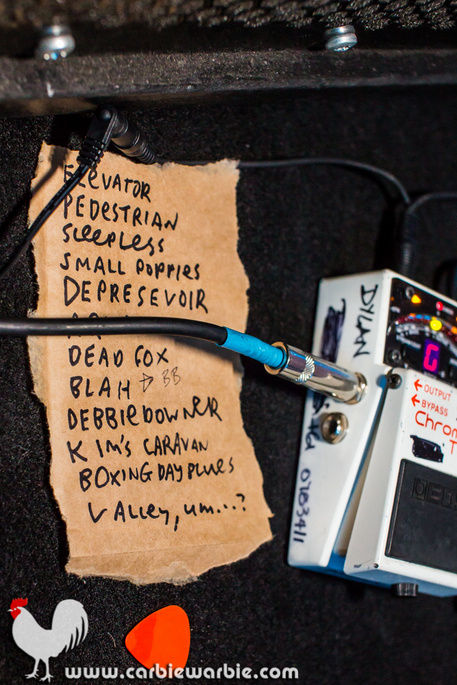 ELEVATOR
PEDESTRIAN
SleepLess
SMALL POPPIES
DEPRESEVOIR
DEAD FOX
BLAH → BB
DEBBIEDOWNER
KIM'S CARAVAN
BOXING DAY BLUES
VALLEY, UM...?
DYLAN
G
← OUTPUT
← BYPASS
Chrom
T
www.carbiewarbie.com